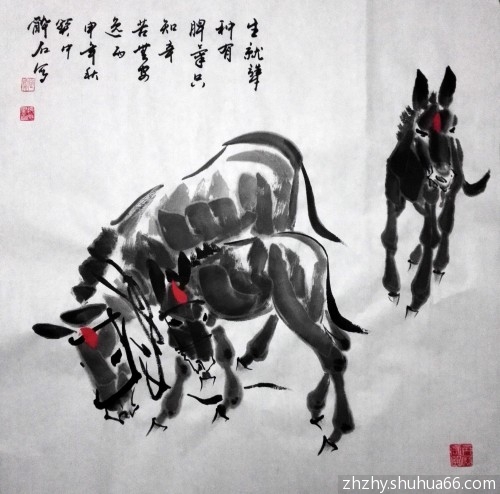 生就犟
种有
脾气只
知辛
苦无安
逸
甲午秋
中
石写
zhzhy.shuhua66.com